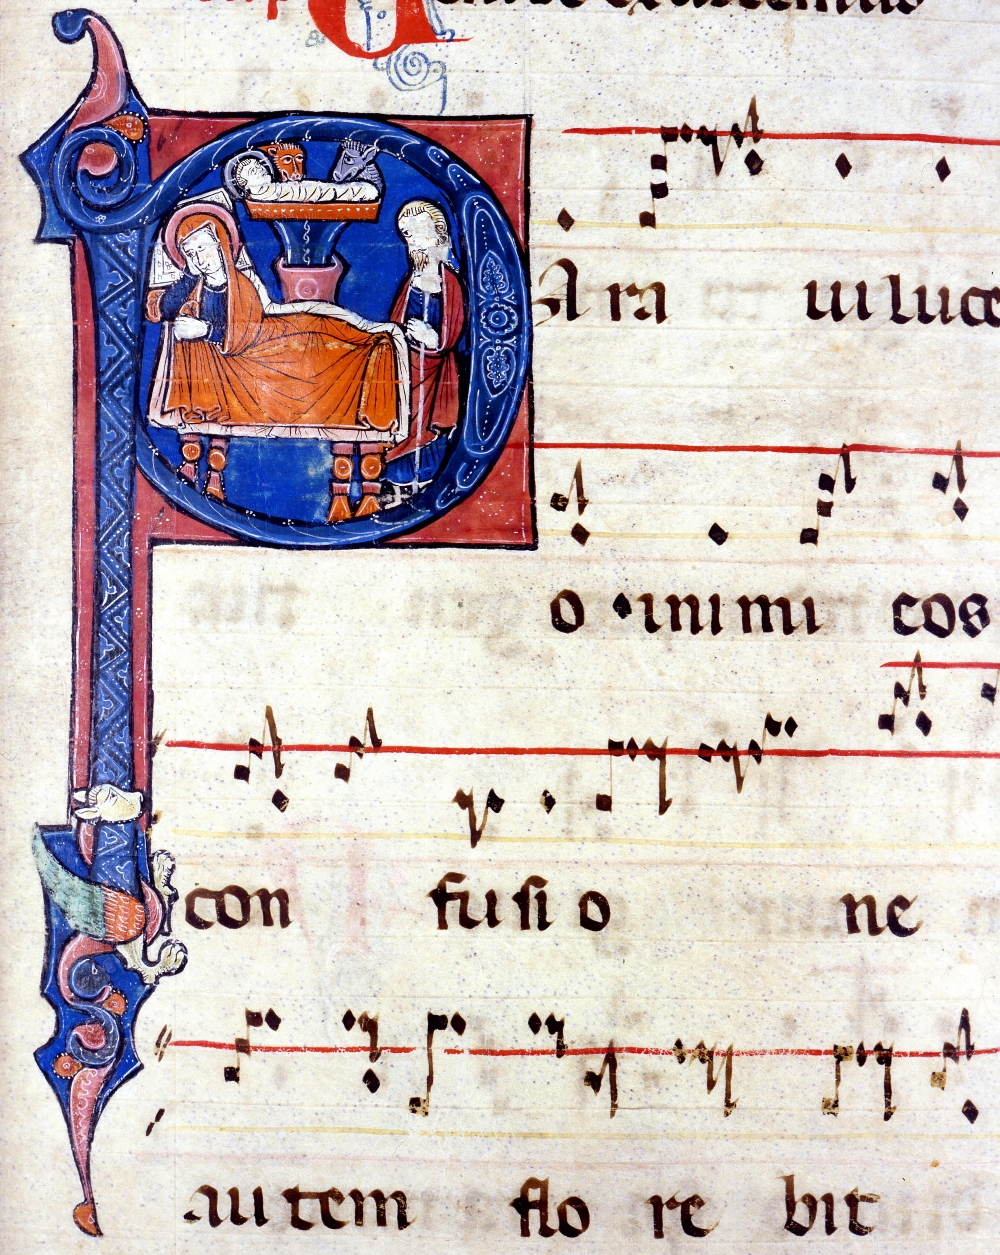 PAra ui luce
o inimi cos
con fusi o ne
autem flo re bit